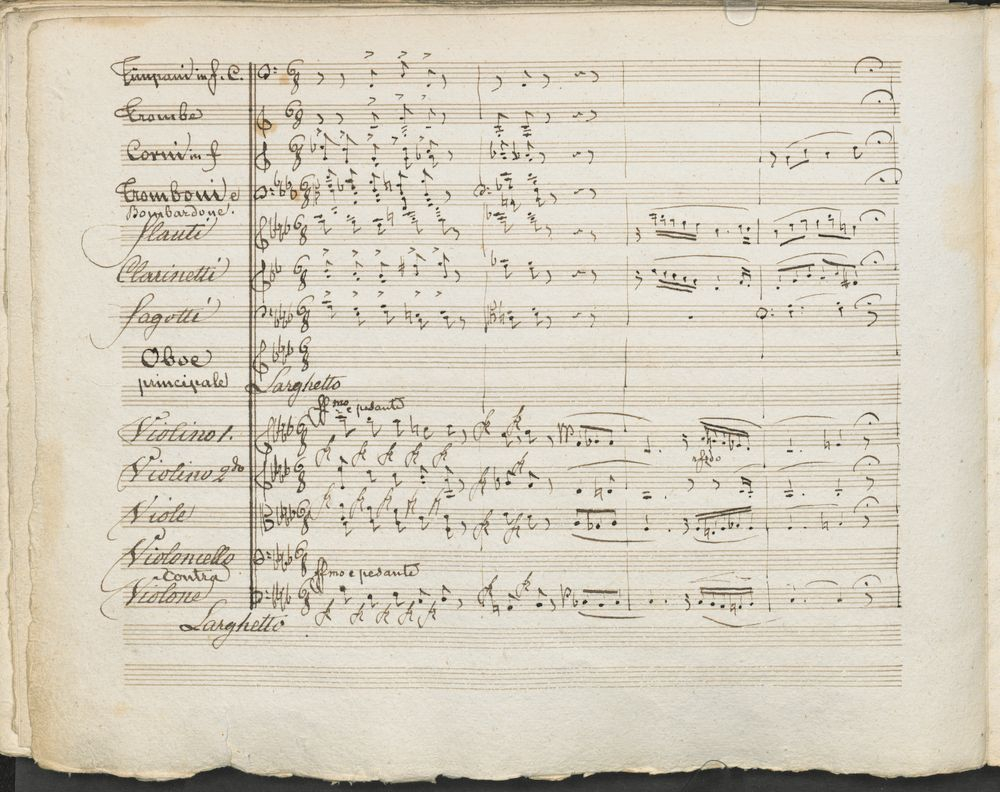 Timpani in f. C.
Trombe
Corni in f
Tromboni e
Bombardone.
flauti
Clarinetti
fagotti
Oboe
principale
Larghetto
ffmo e pesante
Violino 1.
rfzdo
Violino 2do
Viole
Violoncello
ffmo e pesante
Contra
Violone
Larghetto